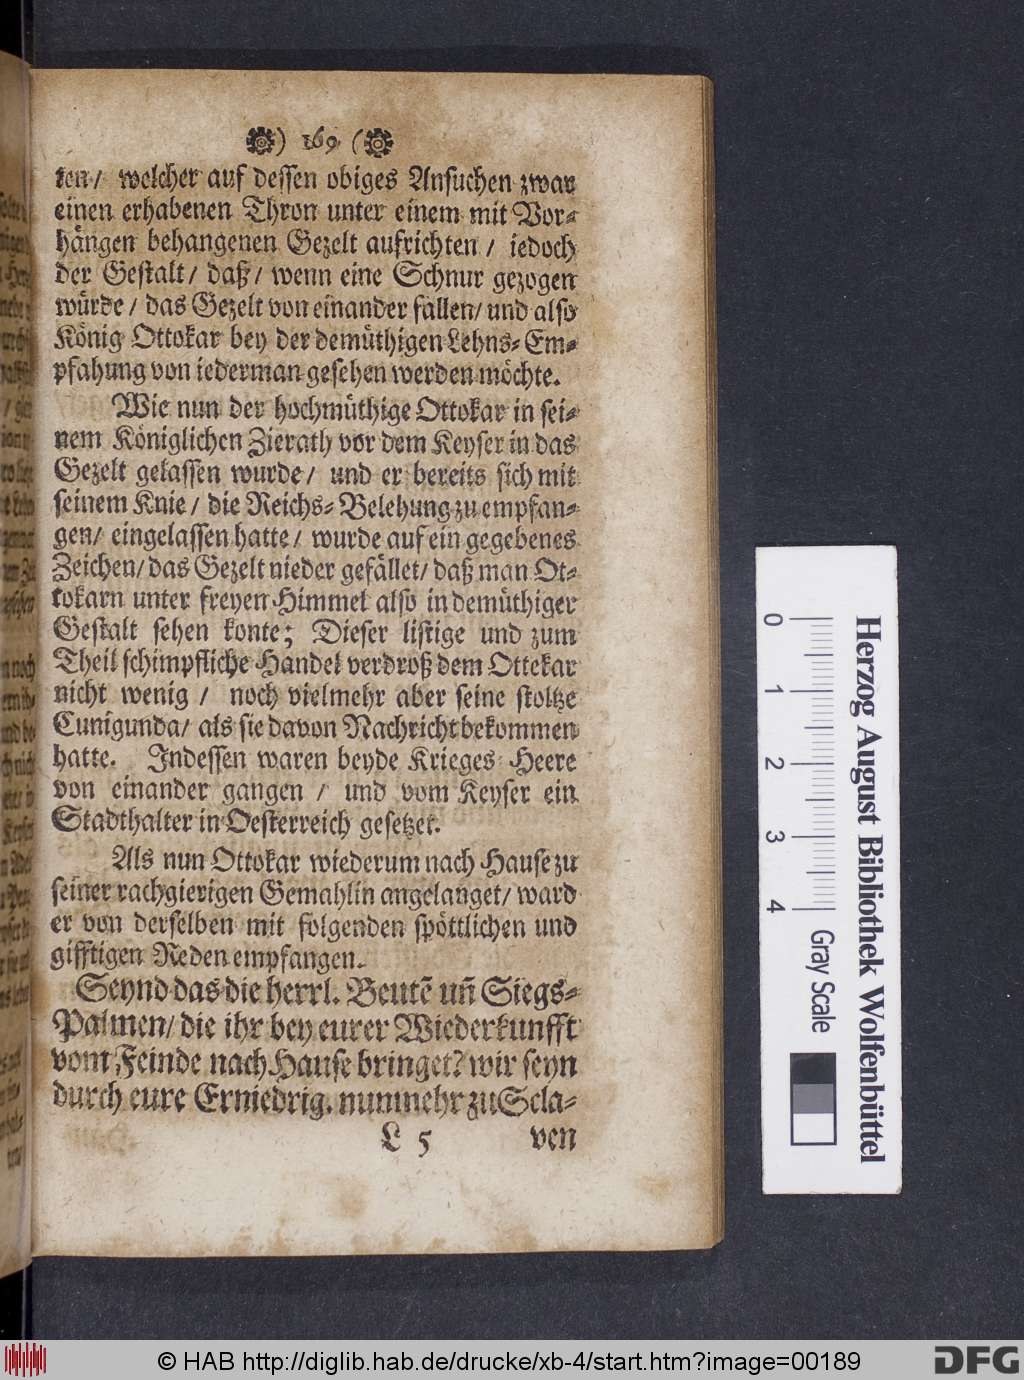 ) 169 (
ten/ welcher auf dessen obiges Ansuchen zwar
einen erhabenen Thron unter einem mit Vor-
hängen behangenen Gezelt aufrichten / iedoch
der Gestalt/ daß/ wenn eine Schnur gezogen
würde/ das Gezelt von einander fallen/ und also
König Ottokar bey der demüthigen Lehns-Em-
pfahung von iederman gesehen werden möchte.
Wie nun der hochmüthige Ottokar in sei-
nem Königlichen Zierath vor dem Keyser in das
Gezelt gelassen wurde/ und er bereits sich mit
seinem Knie/ die Reichs-Belehung zu empfan-
gen/ eingelassen hatte/ wurde auf ein gegebenes
Zeichen/ das Gezelt nieder gefället/ daß man Ot-
tokarn unter freyen Himmel also in demüthiger
Gestalt sehen konte; Dieser listige und zum
Theil schimpfliche Handel verdroß dem Ottekar
nicht wenig / noch vielmehr aber seine stoltze
Cunigunda/ als sie davon Nachricht bekommen
hatte. Indessen waren beyde Krieges-Heere
von einander gangen / und vom Keyser ein
Stadthalter in Oesterreich gesetzet.
Als nun Ottokar wiederum nach Hause zu
seiner rachgierigen Gemahlin angelanget/ ward
er von derselben mit folgenden spöttlichen und
gifftigen Reden empfangen.
Seynd das die herrl. Beutē uñ Siegs-
Palmen/ die ihr bey eurer Wiederkunfft
vom Feinde nach Hause bringet? wir seyn
durch eure Erniedrig. nunmehr zu Scla-
L 5 ven
Herzog August Bibliothek Wolfenbüttel
0 1 2 3 4 Gray Scale
© HAB http://diglib.hab.de/drucke/xb-4/start.htm?image=00189
DFG